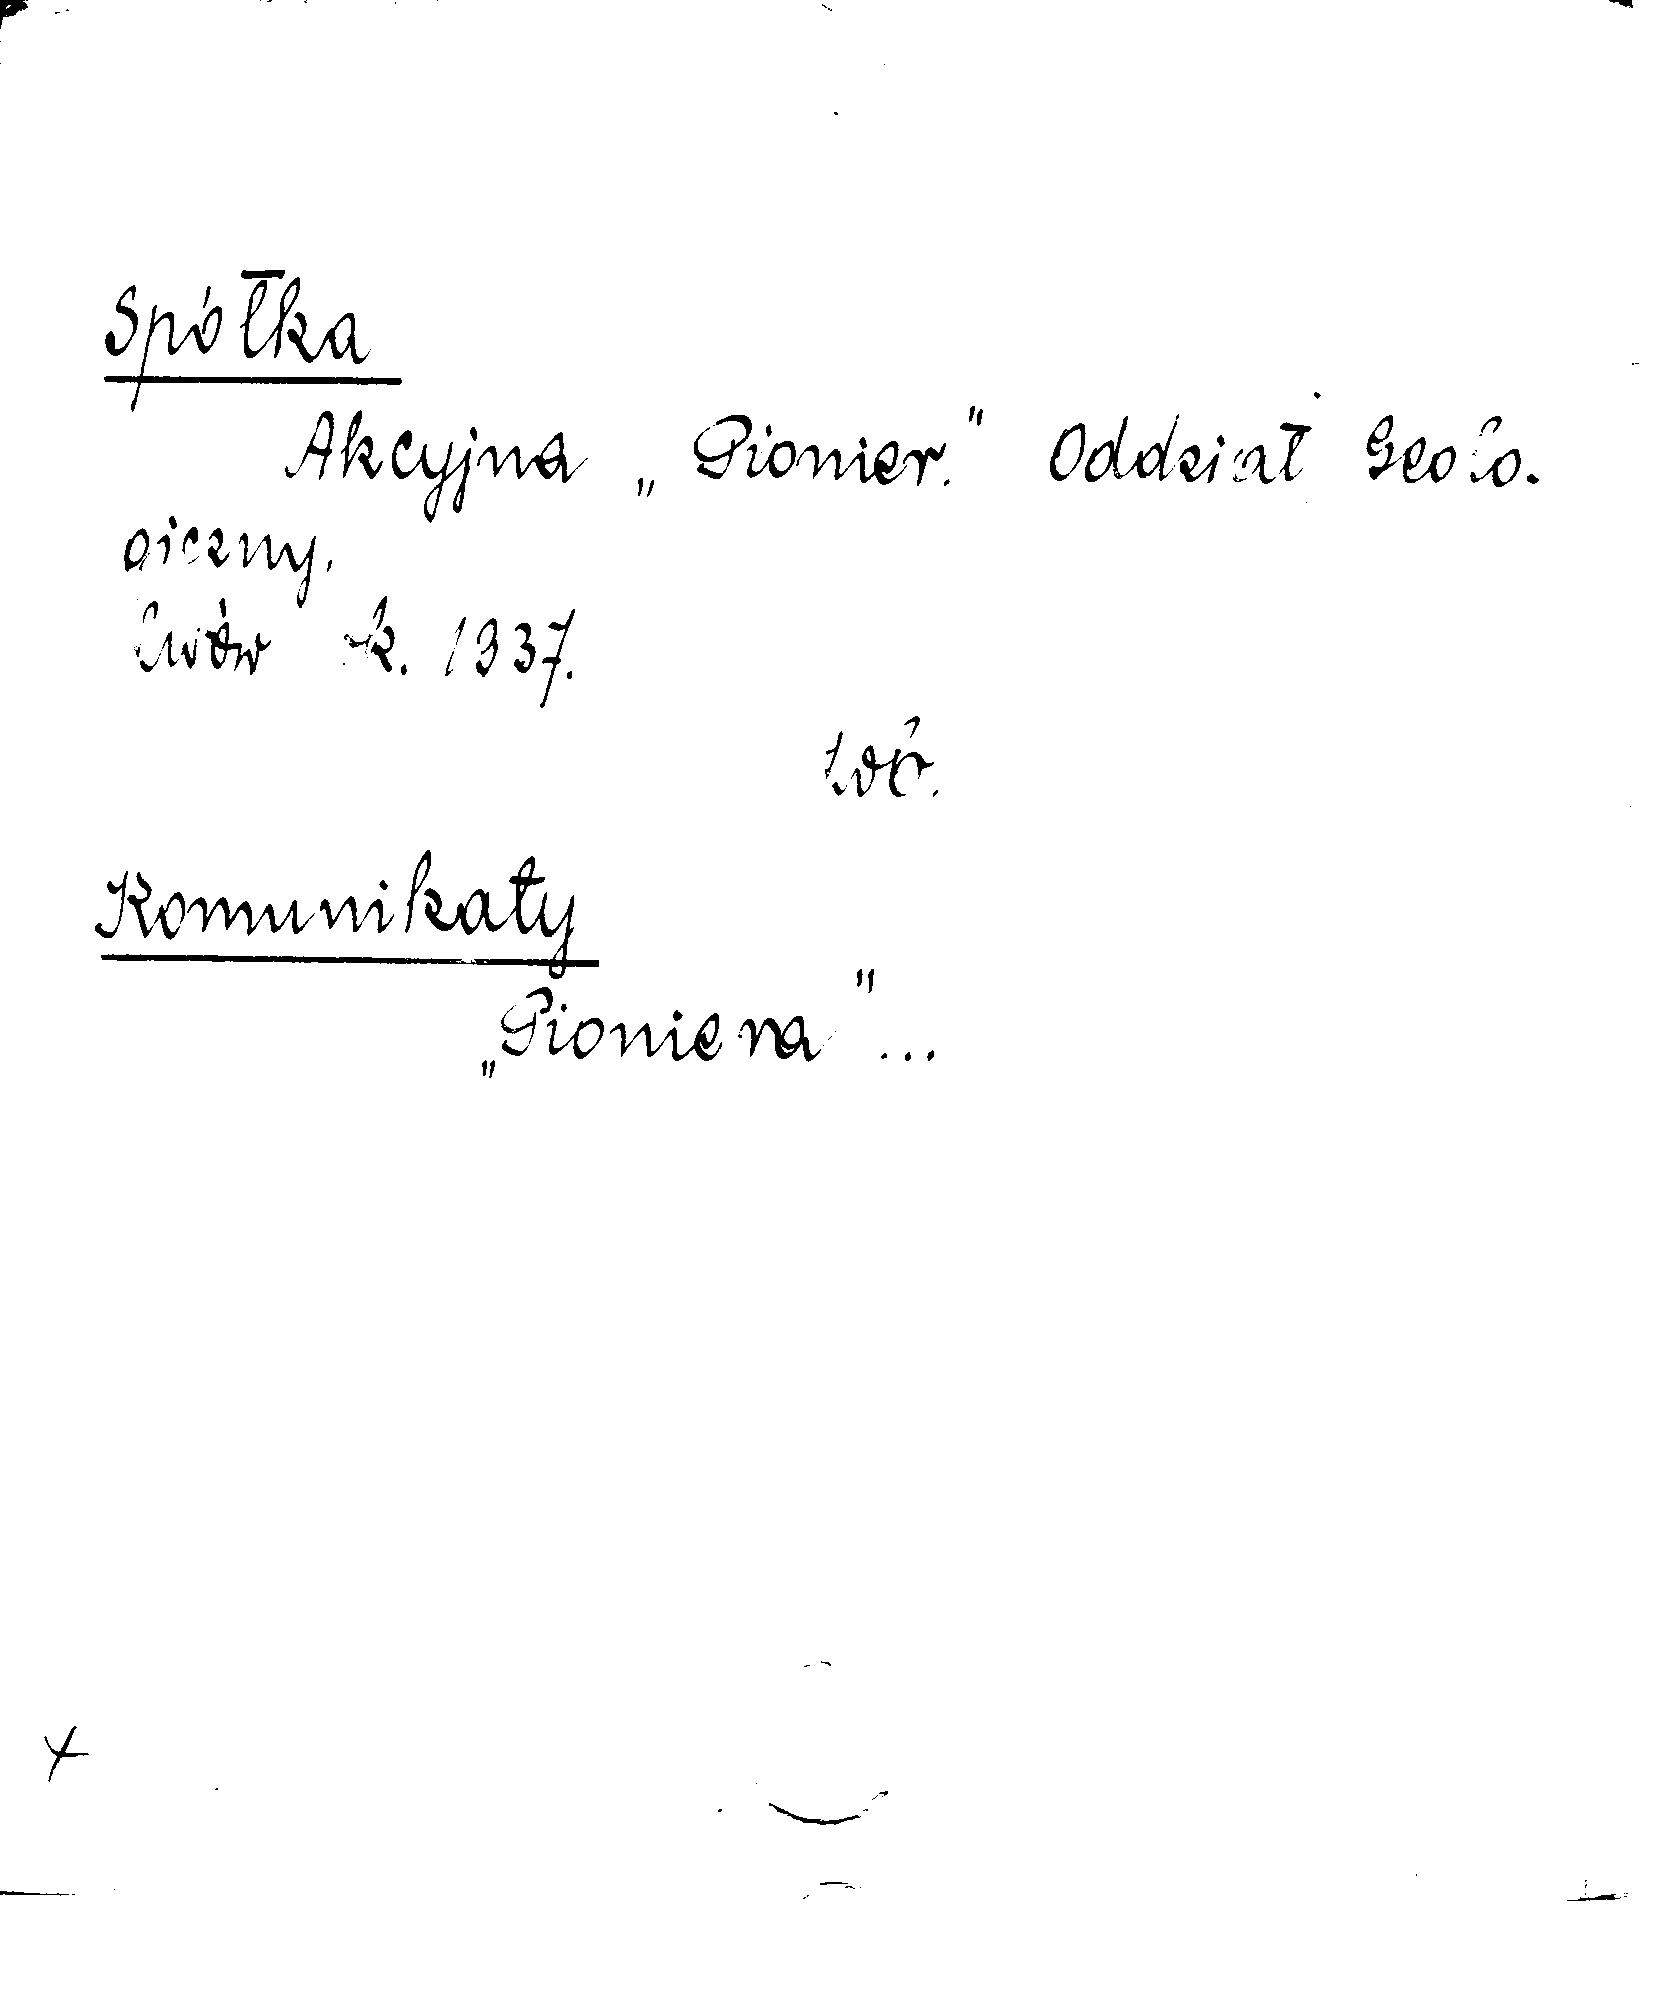 Spółka
Akcyjna „Pionier." Oddział Geolo-
giczny.
Lwów k. 1937.
zob.
Komunikaty
„Pioniera"...